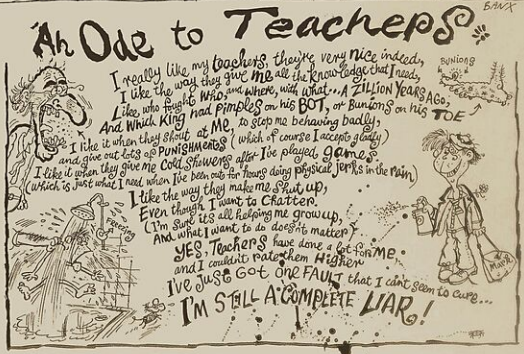 BANX
An Ode to Teachers
I really like my teachers, they're very nice indeed,
I like the way they give me all the knowledge that I need,
Like who fought who, and where, with what... A ZILLION YEARS AGO,
And Which King had Pimples on his BOT, or Bunions on his TOE
BUNIONS
I like it when they shout at ME, to stop me behaving badly,
and give out lots of PUNISHMENTS (which of course I accept gladly)
I like it when they give me Cold Showers after I've played games
(which is just what I need when I've been out for hours doing physical jerks in the rain)
I like the way they make me Shut up,
Even though I want to Chatter.
(I'm sure it's all helping me grow up,
And what I want to do doesn't matter)
YES, Teachers have done a lot for me,
and I couldn't rate them Higher
I've Just Got one FAULT that I can't seem to cure...
I'M STILL A COMPLETE LIAR!